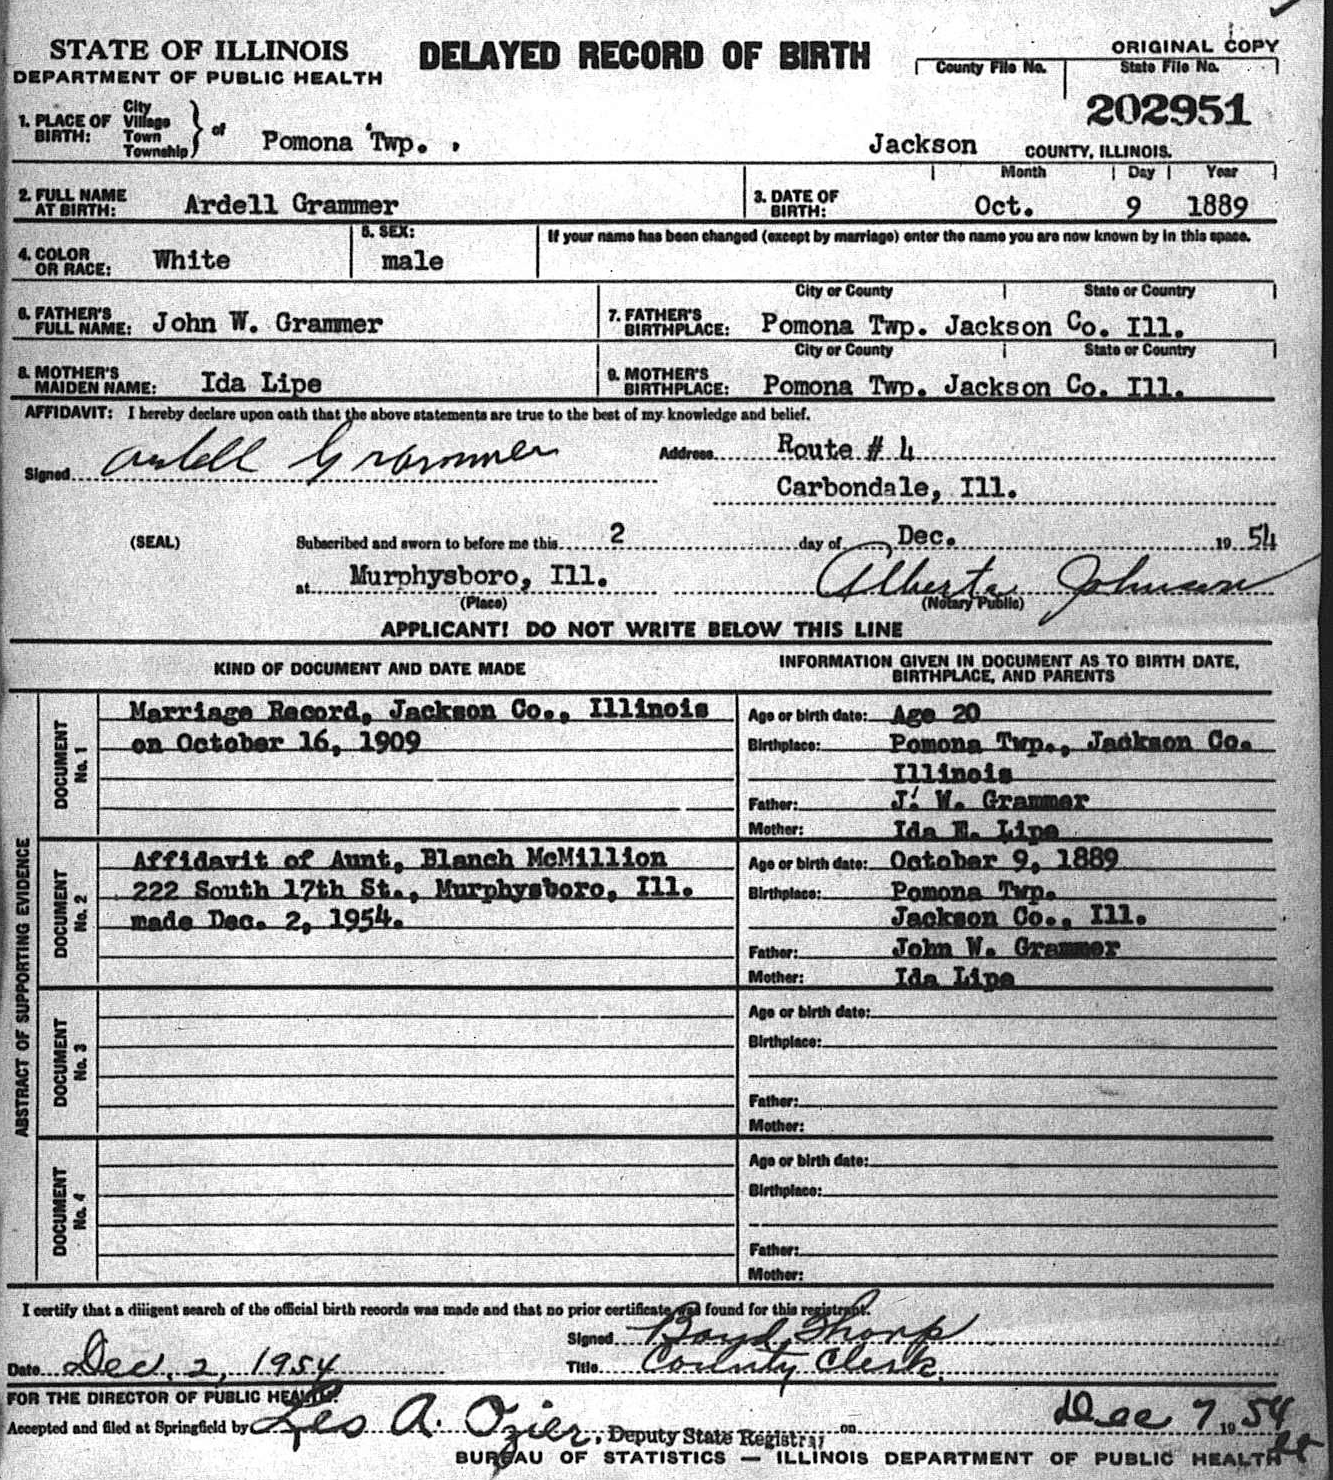 STATE OF ILLINOIS
DEPARTMENT OF PUBLIC HEALTH
DELAYED RECORD OF BIRTH
ORIGINAL COPY
County File No.
State File No.
202951
1. PLACE OF BIRTH: City Village Town Township } of Pomona Twp. , Jackson COUNTY, ILLINOIS.
2. FULL NAME AT BIRTH: Ardell Grammer
3. DATE OF BIRTH: Month Day Year
Oct. 9 1889
4. COLOR OR RACE: White
5. SEX: male
If your name has been changed (except by marriage) enter the name you are now known by in this space.
6. FATHER'S FULL NAME: John W. Grammer
7. FATHER'S BIRTHPLACE: City or County State or Country
Pomona Twp. Jackson Co. Ill.
8. MOTHER'S MAIDEN NAME: Ida Lipe
9. MOTHER'S BIRTHPLACE: City or County State or Country
Pomona Twp. Jackson Co. Ill.
AFFIDAVIT: I hereby declare upon oath that the above statements are true to the best of my knowledge and belief.
Signed Ardell Grammer
Address Route # 4
Carbondale, Ill.
(SEAL) Subscribed and sworn to before me this 2 day of Dec. 19 54
at Murphysboro, Ill. Alberta Johnson
(Place) (Notary Public)
APPLICANT! DO NOT WRITE BELOW THIS LINE
KIND OF DOCUMENT AND DATE MADE
INFORMATION GIVEN IN DOCUMENT AS TO BIRTH DATE,
BIRTHPLACE, AND PARENTS
ABSTRACT OF SUPPORTING EVIDENCE
DOCUMENT No. 1
Marriage Record, Jackson Co., Illinois
on October 16, 1909
Age or birth date: Age 20
Birthplace: Pomona Twp., Jackson Co.
Illinois
Father: J. W. Grammer
Mother: Ida E. Lipe
DOCUMENT No. 2
Affidavit of Aunt, Blanch McMillion
222 South 17th St., Murphysboro, Ill.
made Dec. 2, 1954.
Age or birth date: October 9, 1889
Birthplace: Pomona Twp.
Jackson Co., Ill.
Father: John W. Grammer
Mother: Ida Lipe
DOCUMENT No. 3
Age or birth date:
Birthplace:
Father:
Mother:
DOCUMENT No. 4
Age or birth date:
Birthplace:
Father:
Mother:
I certify that a diligent search of the official birth records was made and that no prior certificate was found for this registrant.
Signed Boyd Thorp
Date Dec. 2, 1954 Title County Clerk.
FOR THE DIRECTOR OF PUBLIC HEALTH:
Accepted and filed at Springfield by Leo A. Ozier, Deputy State Registrar on Dec 7 19 54
BUREAU OF STATISTICS — ILLINOIS DEPARTMENT OF PUBLIC HEALTH